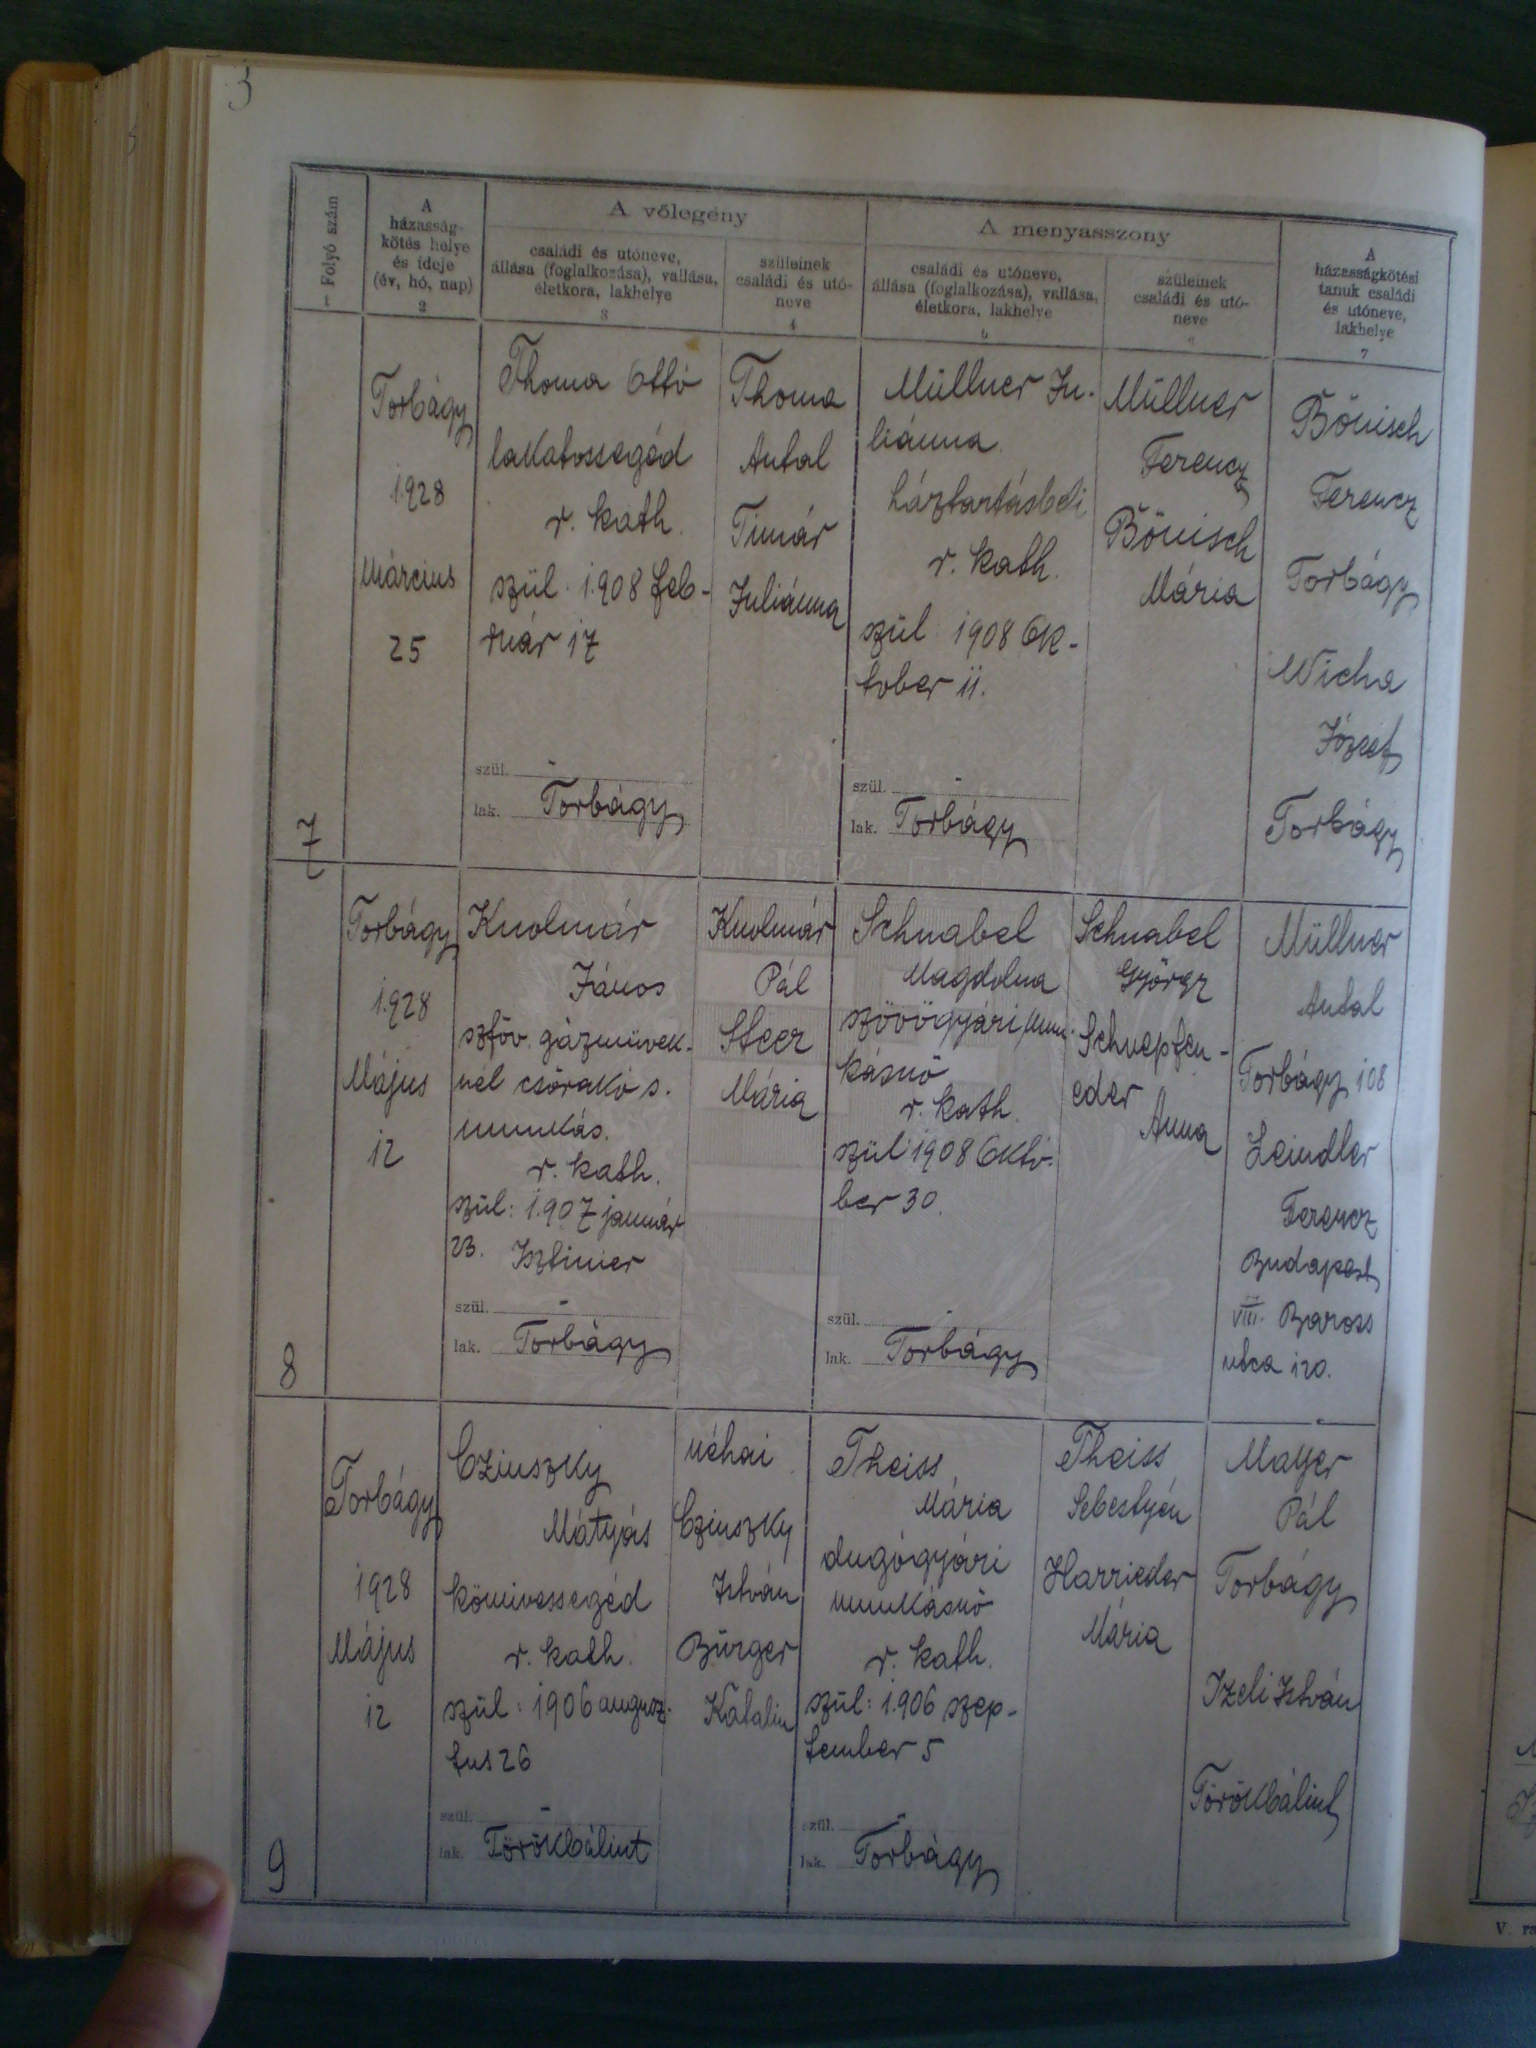 3
A vőlegény
A menyasszony
Folyó szám
1
A
házasság-
kötés helye
és ideje
(év, hó, nap)
2
családi és utóneve,
állása (foglalkozása), vallása,
életkora, lakhelye
3
szüleinek
családi és utó-
neve
4
családi és utóneve,
állása (foglalkozása), vallása,
életkora, lakhelye
5
szüleinek
családi és utó-
neve
A
házasságkötési
tanuk családi
és utóneve,
lakhelye
7
7
Torbágy
1928
Március
25
Thoma Ottó
lakatossegéd
r. kath.
szül. 1908 feb-
ruár 17
szül. -
lak. Torbágy
Thoma
Antal
Timár
Juliánna
Müllner Ju-
liánna
háztartásbeli
r. kath.
szül 1908 Ok-
tober 11.
szül. -
lak. Torbágy
Müllner
Ferencz
Bönisch
Mária
Bönisch
Ferencz
Torbágy
Wicha
József
Torbágy
8
Torbágy
1928
Május
12
Knolmár
János
szföv. gázművek-
nél csőrakó s.
munkás.
r. kath.
szül: 1907 január
23. Isztimer
szül. -
lak. Torbágy
Knolmár
Pál
Steer
Mária
Schnabel
Magdolna
szövőgyári mun-
kásnő
r. kath.
szül 1908 Októ-
ber 30.
szül. -
lak. Torbágy
Schnabel
György
Schnepfen-
eder
Anna
Müllner
Antal
Torbágy 108
Leindler
Ferencz
Budapest
VIII. Baross
utca 120.
9
Torbágy
1928
Május
12
Cziuszky
Mátyás
kőmivessegéd
r. kath.
szül: 1906 augusz-
tus 26
szül. -
lak. Törökbálint
néhai
Cziuszky
István
Bürger
Katalin
Theiss
Mária
dugógyári
munkásnő
r. kath.
szül: 1906 szep-
tember 5
szül. -
lak. Torbágy
Theiss
Sebestyén
Harrieder
Mária
Mayer
Pál
Torbágy
Izeli István
Törökbálint